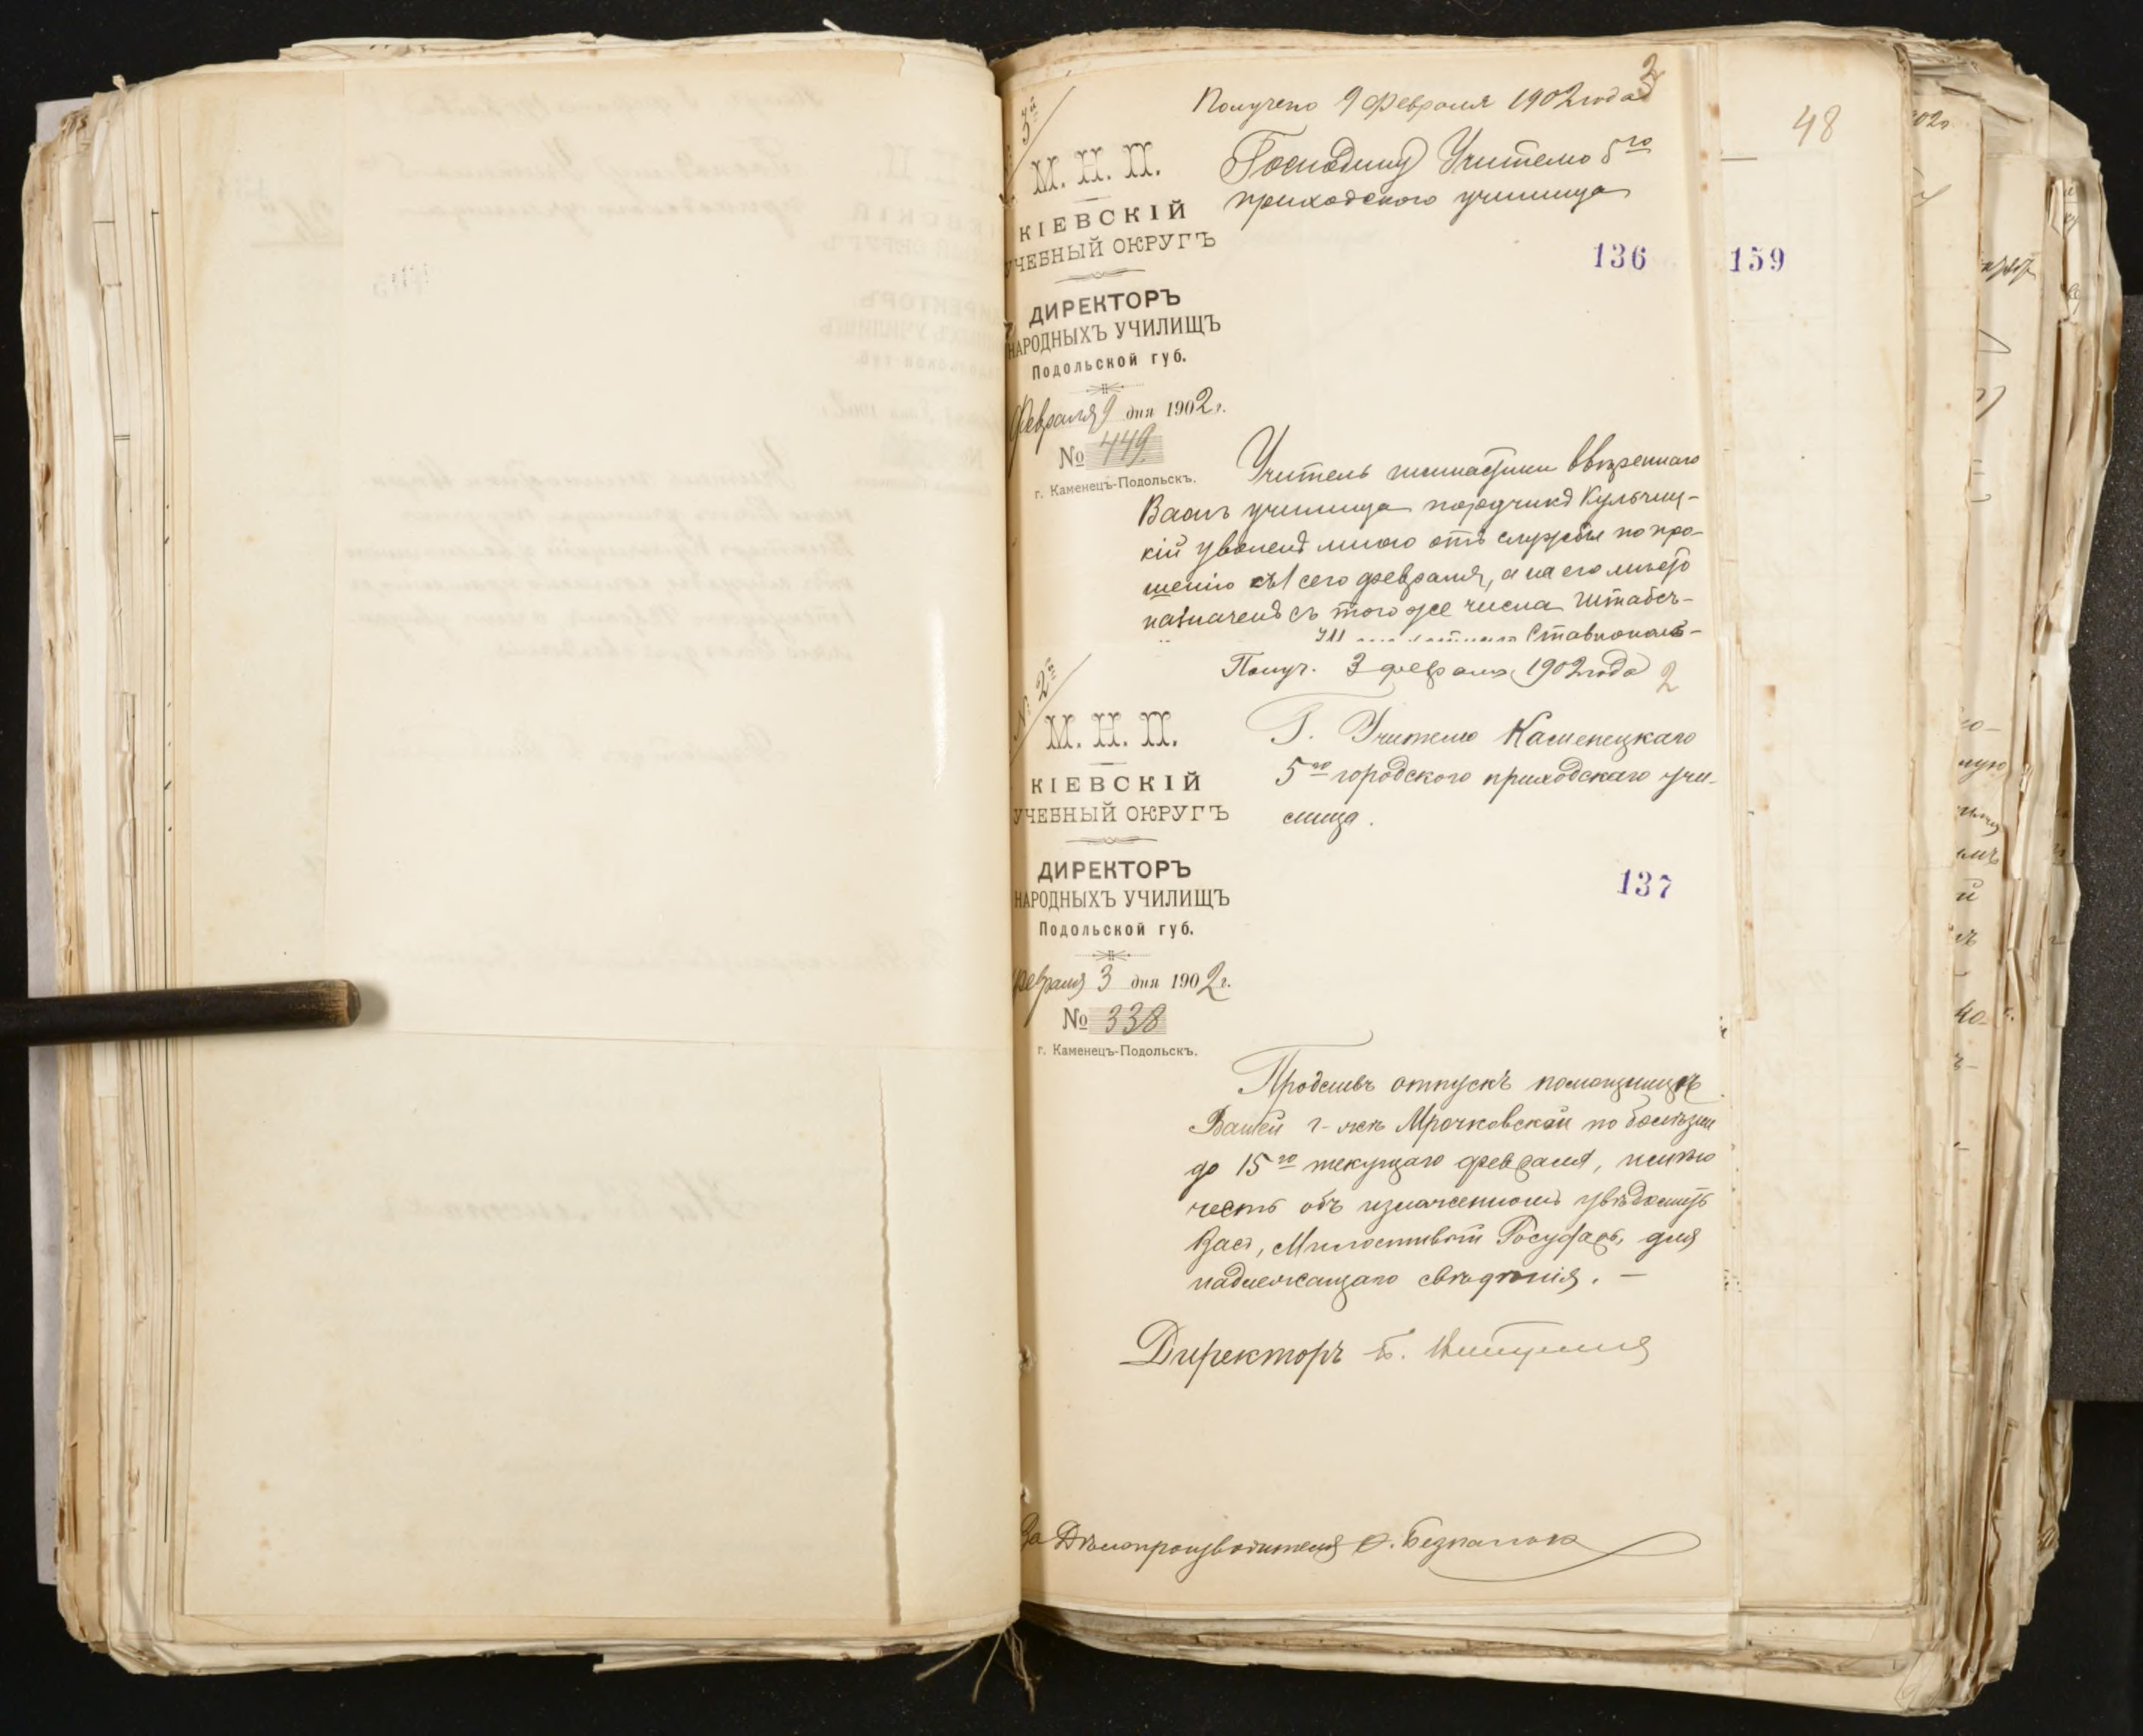 Получено 9 февраля 1902 года
3
№ 3й
М. Н. П.
КІЕВСКІЙ
УЧЕБНЫЙ ОКРУГЪ
ДИРЕКТОРЪ
НАРОДНЫХЪ УЧИЛИЩЪ
Подольской губ.
Февраля 9 дня 1902 г.
№ 449
г. Каменецъ-Подольскъ.
Господину Учителю 5го
приходского училища
136
159
48
Учитель гимнастики ввѣреннаго
Вамъ училища поручикъ Кульчиц-
кій уволенъ мною отъ службы по про-
шенію съ 1 сего февраля, а на его мѣсто
назначенъ съ того же числа Штабсъ-
Ставрополь-
Получ. 3 февраля 1902 года
2
№ 2й
М. Н. П.
КІЕВСКІЙ
УЧЕБНЫЙ ОКРУГЪ
ДИРЕКТОРЪ
НАРОДНЫХЪ УЧИЛИЩЪ
Подольской губ.
Февраля 3 дня 1902 г.
№ 338
г. Каменецъ-Подольскъ.
Г. Учителю Каменецкаго
5го городского приходскаго учи-
лища.
137
Продливъ отпускъ помощницѣ
Вашей г-жѣ Мрочковской по болѣзни
до 15го текущаго февраля, имѣю
честь объ изложенномъ увѣдомить
Васъ, Милостивый Государь, для
надлежащаго свѣдѣнія. —
Директоръ
За Дѣлопроизводителя